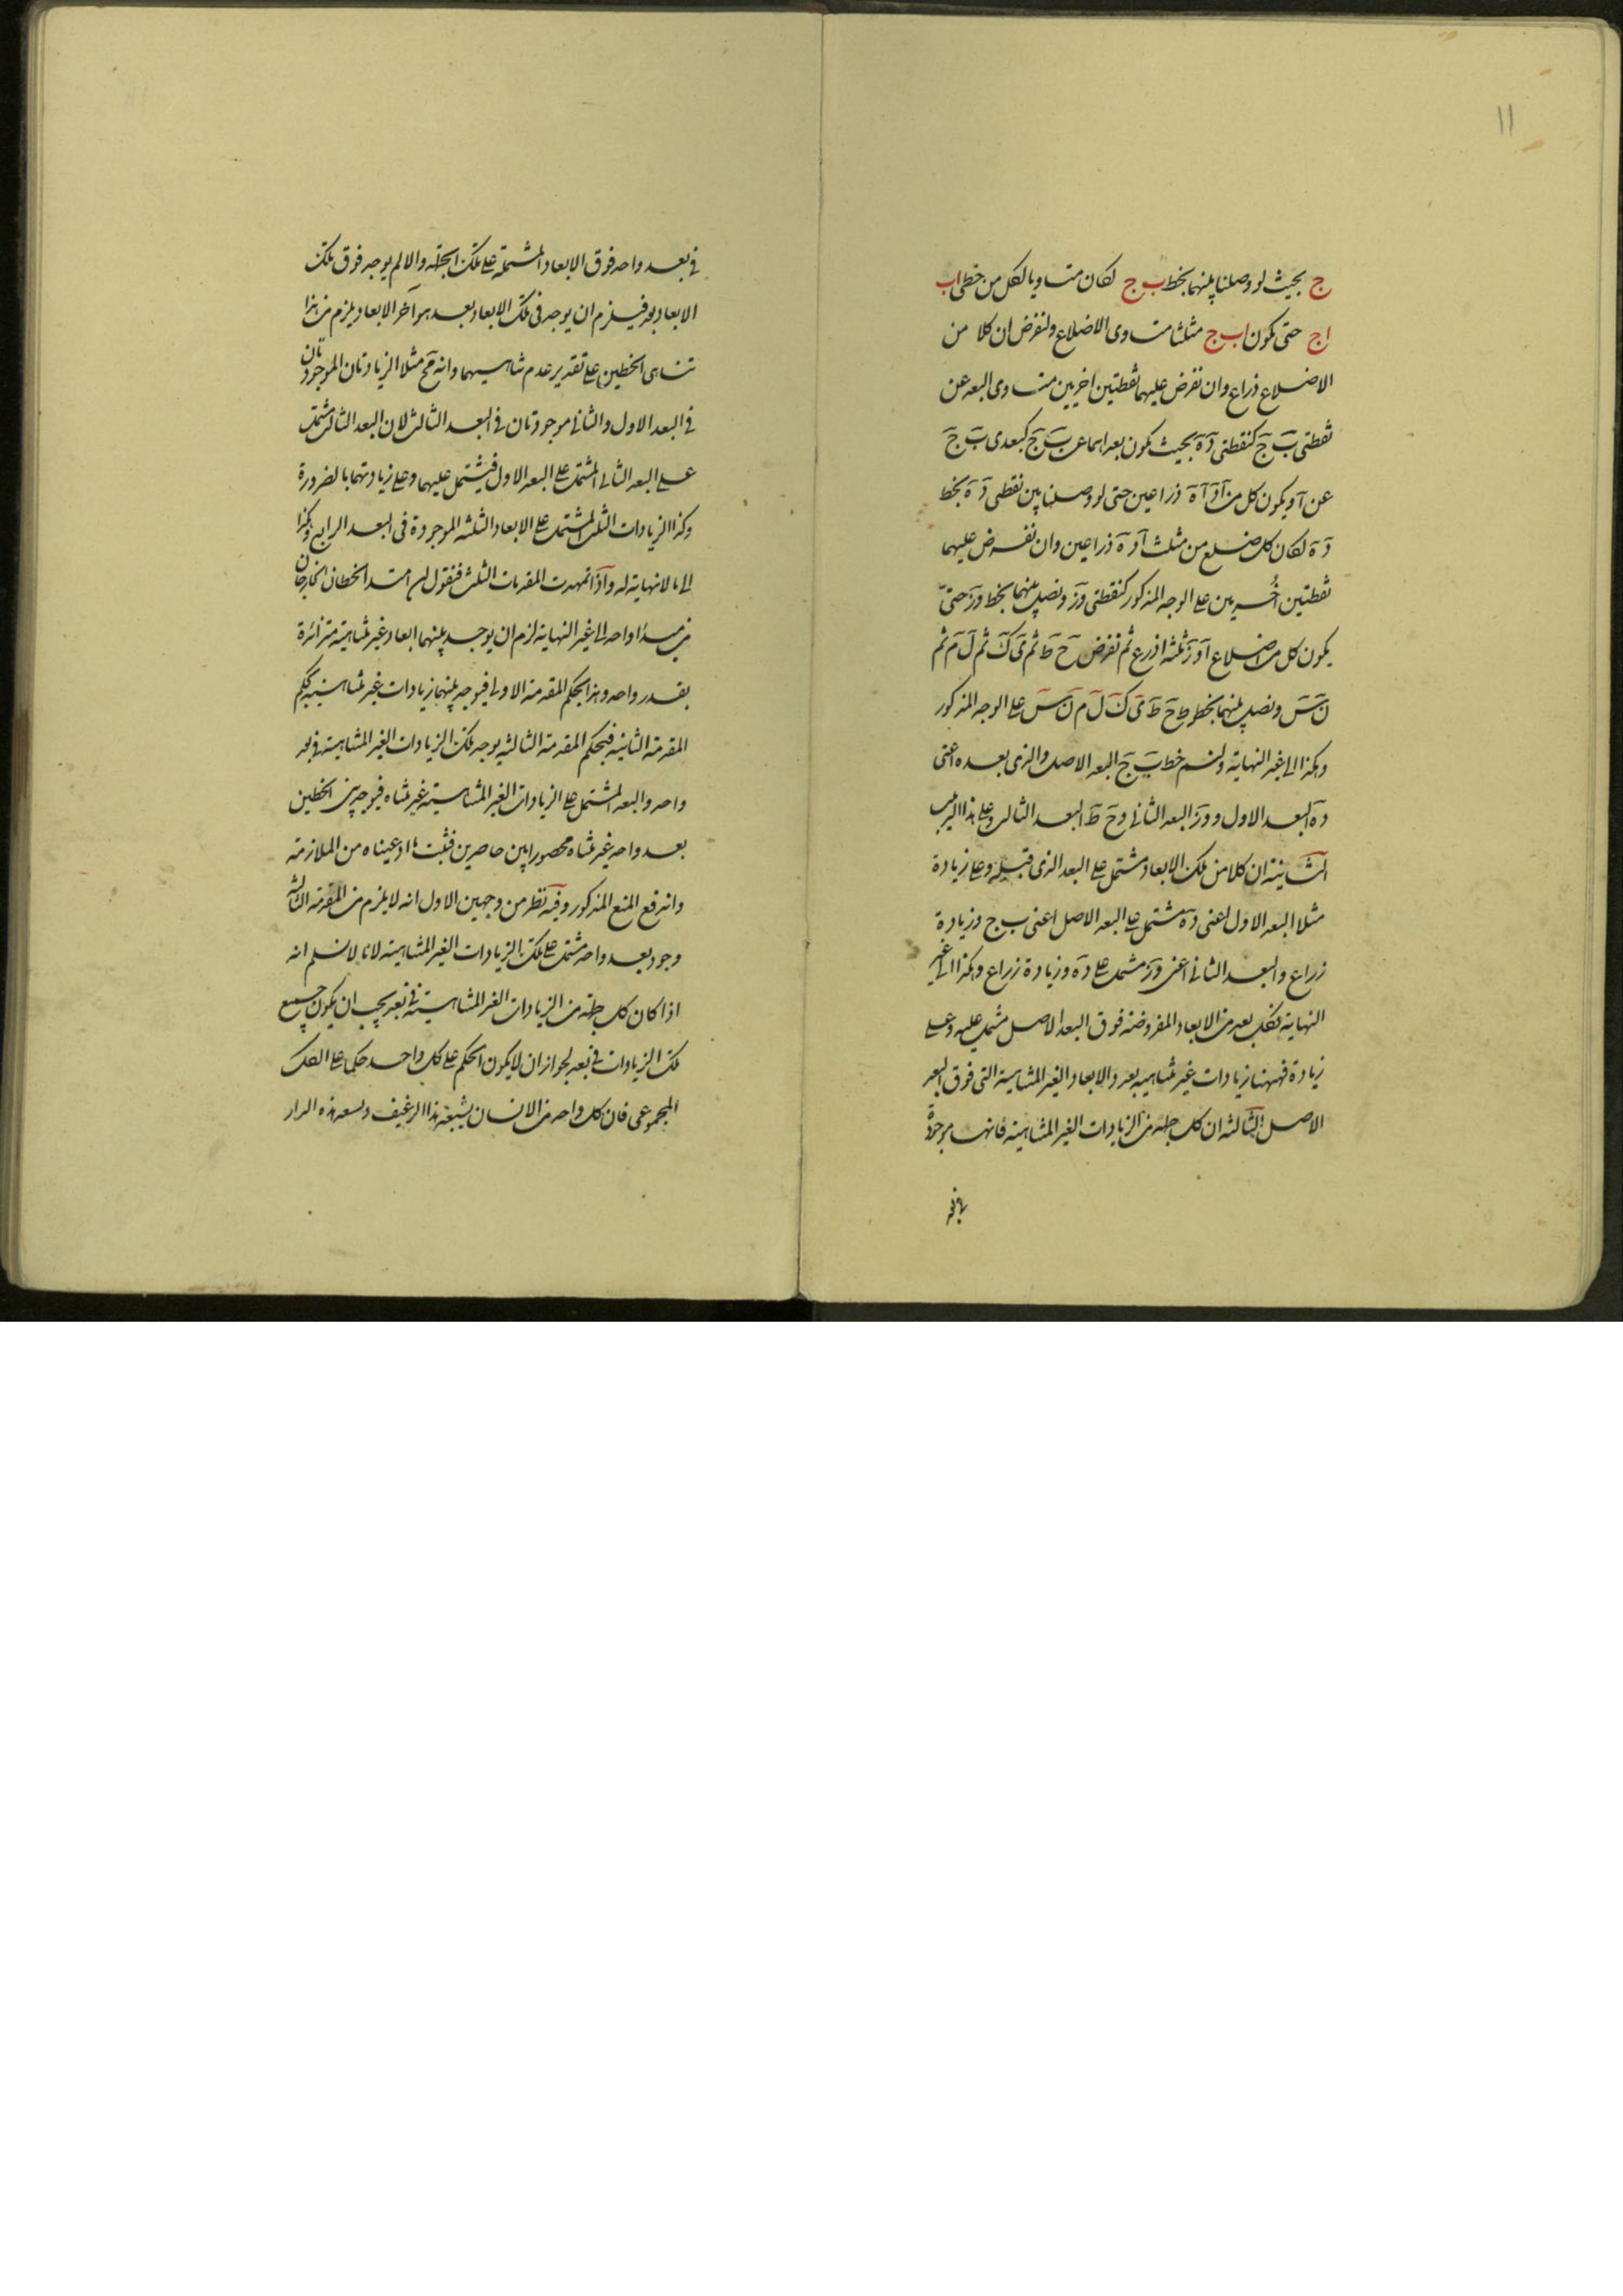 ١١
ج بحيث لو وصلنا بينهما بخط ب ج لكان متساويا لكل من خطى اب
اج حتى يكون اب ج مثلثا متساوى الاضلاع ولنفرض ان كلا من
الاضلاع ذراع وان نفرض عليهما نقطتين اخريين متساوى البعد عن
نقطتى ب ج كنقطتى د ه بحيث يكون بعداهما عن ب ج كبعدى ب ج
عن ا ويكون كل من اد اه ذراعين حتى لو وصلنا بين نقطى د ه بخط
د ه لكان كل ضلع من مثلث ا د ه ذراعين وان نفرض عليهما
نقطتين أخريين على الوجه المذكور كنقطتى و ز ونصل بينهما بخط و ز حتى
يكون كل من اضلاع ا و ز ثلثه اذرع ثم نفرض ح ط ثم ى ك ثم ل م ثم
ن س ونصل بينهما بخطوط ح ط ى ك ل م ن س على الوجه المذكور
وهكذا الى غير النهاية ولنسم خط ب ج البعد الاصل والذى بعده اعنى
د ه البعد الاول و و ز البعد الثانى و ح ط البعد الثالث وعلى هذا الترتيب
الثانية ان كلا من تلك الابعاد مشتمل على البعد الذى قبله وعلى زيادة
مثلا البعد الاول اعنى د ه مشتمل على البعد الاصل اعنى ب ج وزيادة
زراع والبعد الثانى اعنى و ز مشتمل على د ه وزيادة زراع وهكذا الى غير
النهاية فكل بعد من الابعاد المفروضة فوق البعد الاصل مشتمل عليه وعلى
زيادة فههنا زيادات غير متناهيه بعدد الابعاد الغير المتناهية التى فوق البعد
الاصل الثالثه ان كل جملة من الزيادات الغير المتناهية فانها موجودة
فى بعد واحد فوق الابعاد المشتملة على تلك الجملة والا لم يوجد فوق تلك
الابعاد بعد فيلزم ان يوجد فى تلك الابعاد بعد هو آخر الابعاد ويلزم من هذا
تناهى الخطين على تقدير عدم تناهيهما وانه مح مثلا الزيادتان الموجودتان
فى البعد الاول والثانى موجودتان فى البعد الثالث لان البعد الثالث مشتمل
على البعد الثانى المشتمل على البعد الاول فيشتمل عليهما وعلى زيادتهما بالضرورة
وكذا الزيادات الثلث المشتمل على الابعاد الثلثه الموجودة فى البعد الرابع وهكذا
الى ما لا نهاية له واذا تمهدت المقدمات الثلث فنقول لو امتد الخطان الخارجان
من مبدا واحد الى غير النهاية لزم ان يوجد بينهما ابعاد غير متناهية متزائدة
بقدر واحد وهذا بحكم المقدمة الاولى فيوجد بينهما زيادات غير متناهية بحكم
المقدمة الثانيه فبحكم المقدمة الثالثه يوجد تلك الزيادات الغير المتناهية فى بعد
واحد والبعد المشتمل على الزيادات الغير المتناهية غير متناه فيوجد بين الخطين
بعد واحد غير متناه محصورا بين حاصرين فثبت ما ادعيناه من الملازمة
واندفع المنع المذكور وفيه نظر من وجهين الاول انه لا يلزم من المقدمة الثالثه
وجود بعد واحد مشتمل على تلك الزيادات الغير المتناهية لانا لا نسلم انه
اذا كان كل جملة من الزيادات الغير المتناهية فى بعد يجب ان يكون جميع
تلك الزيادات فى بعد لجواز ان لا يكون الحكم على كل واحد حكما على الكل
المجموعى فان كل واحد من الانسان يشبعه هذا الرغيف ويسعه هذه الدار